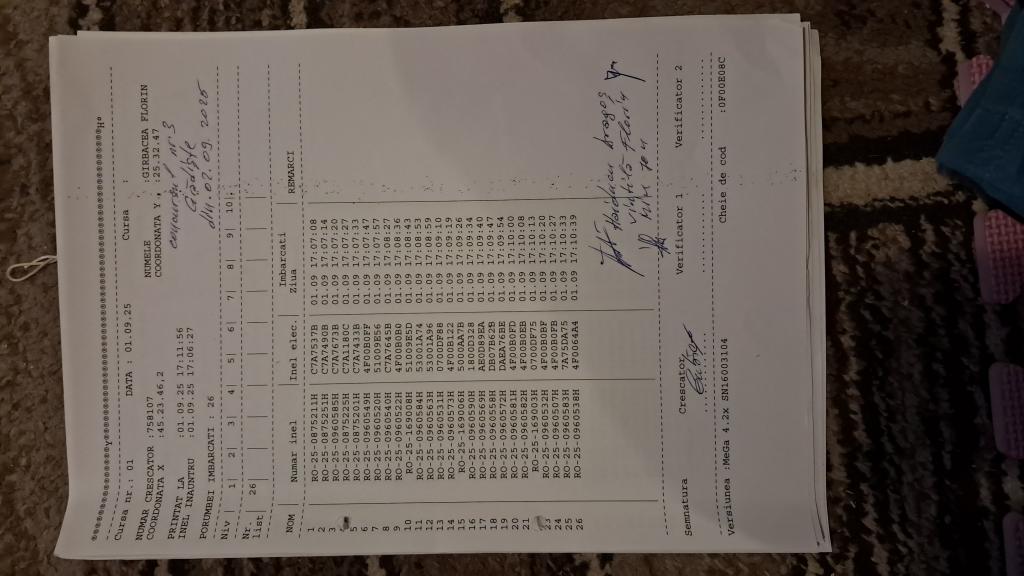 Cursa nr.: 01 DATA : 01.09.25 Cursa :
NUMAR CRESCATOR :758107 NUMELE :GIRBACEA FLORIN
COORDONATA X :45.23.46.2 COORDONATA Y :25.32.47
PRINTAT LA :01.09.25 17:11:56
INEL INAUNTRU :01.09.25 17:06:27
concursul nr.3
PORUMBEI IMBARCATI : 26
din. 02.09.2025
Niv | 1| 2| 3| 4| 5| 6| 7| 8| 9| 10|
Nr.
list 26
NOM Numar inel Inel elec. Imbarcati REMARCI
Ziua
1 RO-25-0875211H C7A7537B 01.09 17:07:08
2 RO-25-0875253H C7A7490B 01.09 17:07:14
3 RO-25-0960585H C7A7673B 01.09 17:07:20
RO-25-0875225H C7A1180C 01.09 17:07:27
5 RO-25-0875201H C7A7433B 01.09 17:07:33
6 RO-25-0960549H 4F00B0FF 01.09 17:07:47
7 RO-25-0960520H 51009E56 01.09 17:07:57
8 RO-25-0960540H C7A7645B 01.09 17:08:27
9 RO-25-0960522H 4F00B0B0 01.09 17:08:36
10 RO-25-169008H 51009B5D 01.09 17:08:43
11 RO-25-0960584H 53001A74 01.09 17:08:53
12 RO-25-0960563H 53001A96 01.09 17:08:59
13 RO-25-0960531H 0700DF88 01.09 17:09:10
14 RO-25-0960573H 4F00B122 01.09 17:09:19
15 RO-25-169006H 5000AA7B 01.09 17:09:26
16 RO-25-0960590H 1800D328 01.09 17:09:34
17 RO-25-0960569H AE0D89EA 01.09 17:09:40
18 RO-25-0960558H DB07B62B 01.09 17:09:47
19 RO-25-0960572H DAEA76BE 01.09 17:09:54
20 RO-25-0960581H 4F00B0FD 01.09 17:10:00
21 RO-25-0960582H 4F00B0EB 01.09 17:10:08
RO-25-169003H 0700DF75 01.09 17:10:13
23 RO-25-0960532H 4F00B0BF 01.09 17:10:20
24 RO-25-0960507H 4F00B0FB 01.09 17:10:27
25 RO-25-0960583H 7A75DA75 01.09 17:10:33
26 RO-25-0960538H 4F0064A4 01.09 17:10:39
Dragos
Florin
Semnatura Crescator Verificator 1 Verificator 2
Versiunea :MeGa 4.2x SN16003104 Cheie de cod :0F00E08C